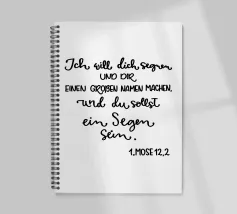 Ich will dich segnen
UND DIR
EINEN GROßEN NAMEN MACHEN,
und du sollst
ein Segen
sein.
1.MOSE 12,2